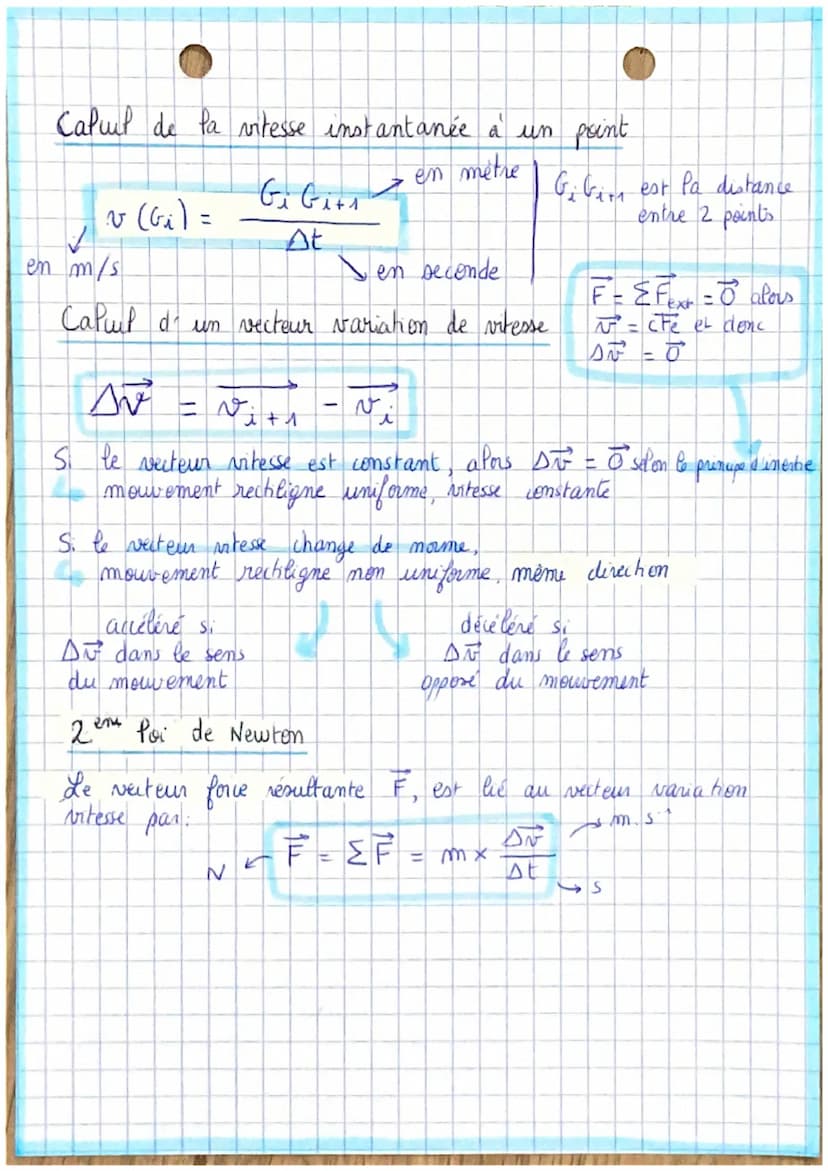 Calcul de la vitesse instantanée à un point
v (Gi) = Gi Gi+1 / Δt
en mètre
en m/s
en seconde
Gi Gi+1 est la distance
entre 2 points
F⃗ = ΣF⃗ext = 0⃗ alors
v⃗ = cte et donc
Δv⃗ = 0⃗
Calcul d'un vecteur variation de vitesse
Δv⃗ = v⃗i+1 - v⃗i
Si le vecteur vitesse est constant, alors Δv⃗ = 0⃗ selon le principe d'inertie
mouvement rectiligne uniforme, vitesse constante
Si le vecteur vitesse change de norme,
mouvement rectiligne non uniforme, même direction
accéléré si
Δv⃗ dans le sens
du mouvement
décéléré si
Δv⃗ dans le sens
opposé du mouvement
2ème loi de Newton
Le vecteur force résultante F⃗, est lié au vecteur variation
vitesse par:
F⃗ = ΣF⃗ = m x Δv⃗ / Δt
m.s⁻¹
N
s